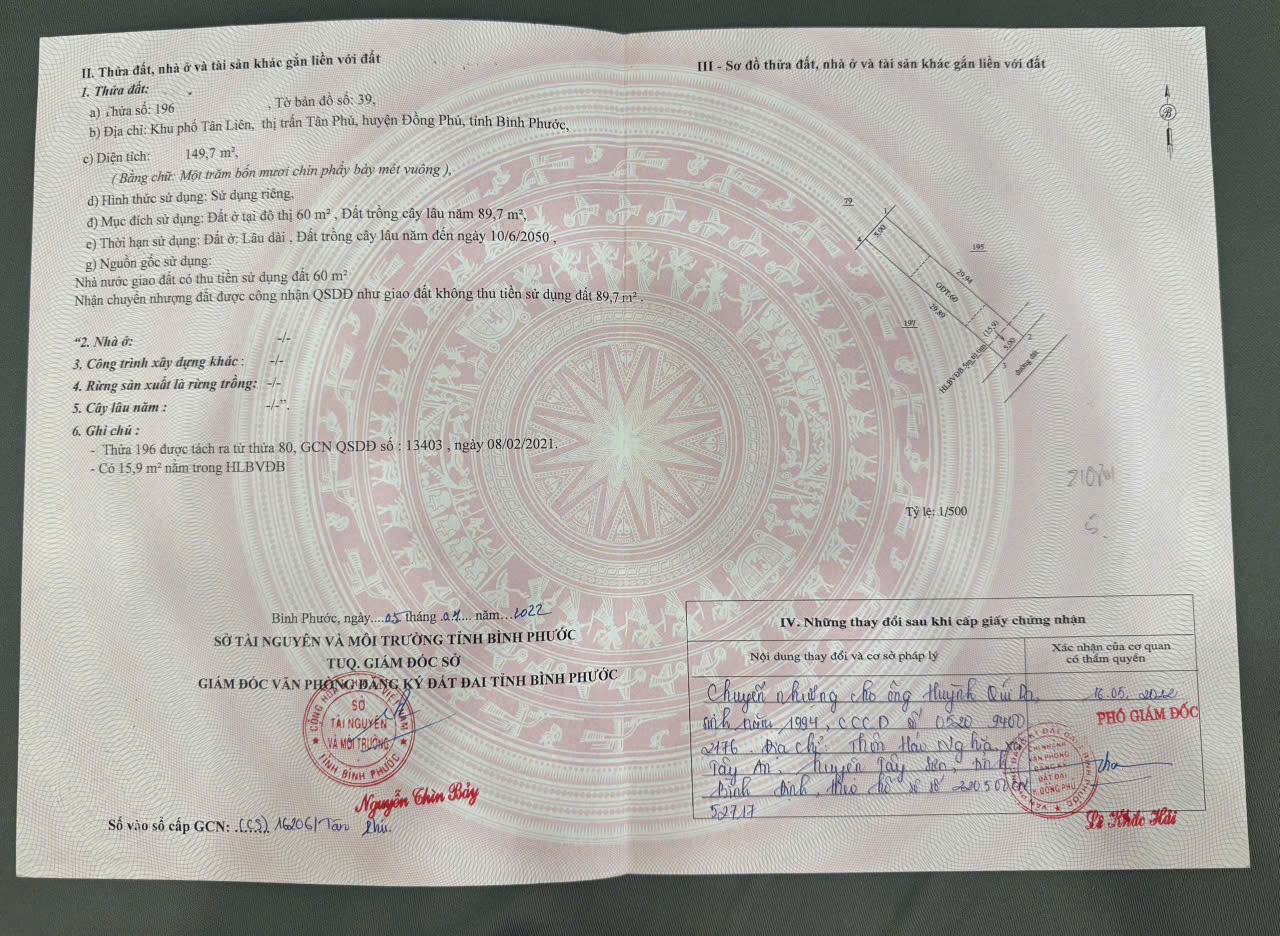 II. Thửa đất, nhà ở và tài sản khác gắn liền với đất
1. Thửa đất:
a) Thửa số: 196 , Tờ bản đồ số: 39,
b) Địa chỉ: Khu phố Tân Liên, thị trấn Tân Phú, huyện Đồng Phú, tỉnh Bình Phước,
c) Diện tích: 149,7 m²,
( Bằng chữ: Một trăm bốn mươi chín phẩy bảy mét vuông ),
d) Hình thức sử dụng: Sử dụng riêng,
đ) Mục đích sử dụng: Đất ở tại đô thị 60 m² , Đất trồng cây lâu năm 89,7 m²,
e) Thời hạn sử dụng: Đất ở: Lâu dài , Đất trồng cây lâu năm đến ngày 10/6/2050 ,
g) Nguồn gốc sử dụng:
Nhà nước giao đất có thu tiền sử dụng đất 60 m²
Nhận chuyển nhượng đất được công nhận QSDĐ như giao đất không thu tiền sử dụng đất 89,7 m² .
“2. Nhà ở: -/-
3. Công trình xây dựng khác : -/-
4. Rừng sản xuất là rừng trồng: -/-
5. Cây lâu năm : -/-”.
6. Ghi chú :
- Thửa 196 được tách ra từ thửa 80, GCN QSDĐ số : 13403 , ngày 08/02/2021.
- Có 15,9 m² nằm trong HLBVĐB
Bình Phước, ngày....05 tháng .04... năm...2022
SỞ TÀI NGUYÊN VÀ MÔI TRƯỜNG TỈNH BÌNH PHƯỚC
TUQ. GIÁM ĐỐC SỞ
GIÁM ĐỐC VĂN PHÒNG ĐĂNG KÝ ĐẤT ĐAI TỈNH BÌNH PHƯỚC
CỘNG HÒA VIỆT NAM
SỞ
TÀI NGUYÊN
VÀ MÔI TRƯỜNG
★ TỈNH BÌNH PHƯỚC ★
Nguyễn Thìn Bảy
Số vào sổ cấp GCN: .(CS). 16206/Tân Phú.
III - Sơ đồ thửa đất, nhà ở và tài sản khác gắn liền với đất
B
79
1
4
5.00
195
29.94
ODT:60
29.89
197
(15.9)
5.00
2
3
HLBVĐB
đường đất
Tỷ lệ: 1/500
IV. Những thay đổi sau khi cấp giấy chứng nhận
Nội dung thay đổi và cơ sở pháp lý
Xác nhận của cơ quan
có thẩm quyền
Chuyển nhượng cho ông Huỳnh Quí
sinh năm 1994, CCCD số 0520 9400
2176. Địa chỉ: Thôn Háo Nghĩa, xã
Tây An, huyện Tây Sơn, tỉnh
Bình Định, theo hồ sơ số
52717
16.05.2022
PHÓ GIÁM ĐỐC
CHI NHÁNH
VĂN PHÒNG
ĐĂNG KÝ
ĐẤT ĐAI
H. ĐỒNG PHÚ
Lê Khắc Hải